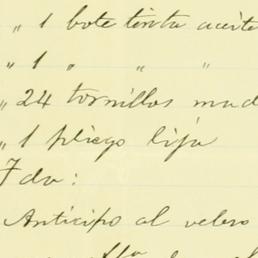 „ 1 bote tinta aceite
„ 1 „ „ „
„ 24 tornillos mad
„ 1 pliego lija
Fdo:
Anticipo al velero